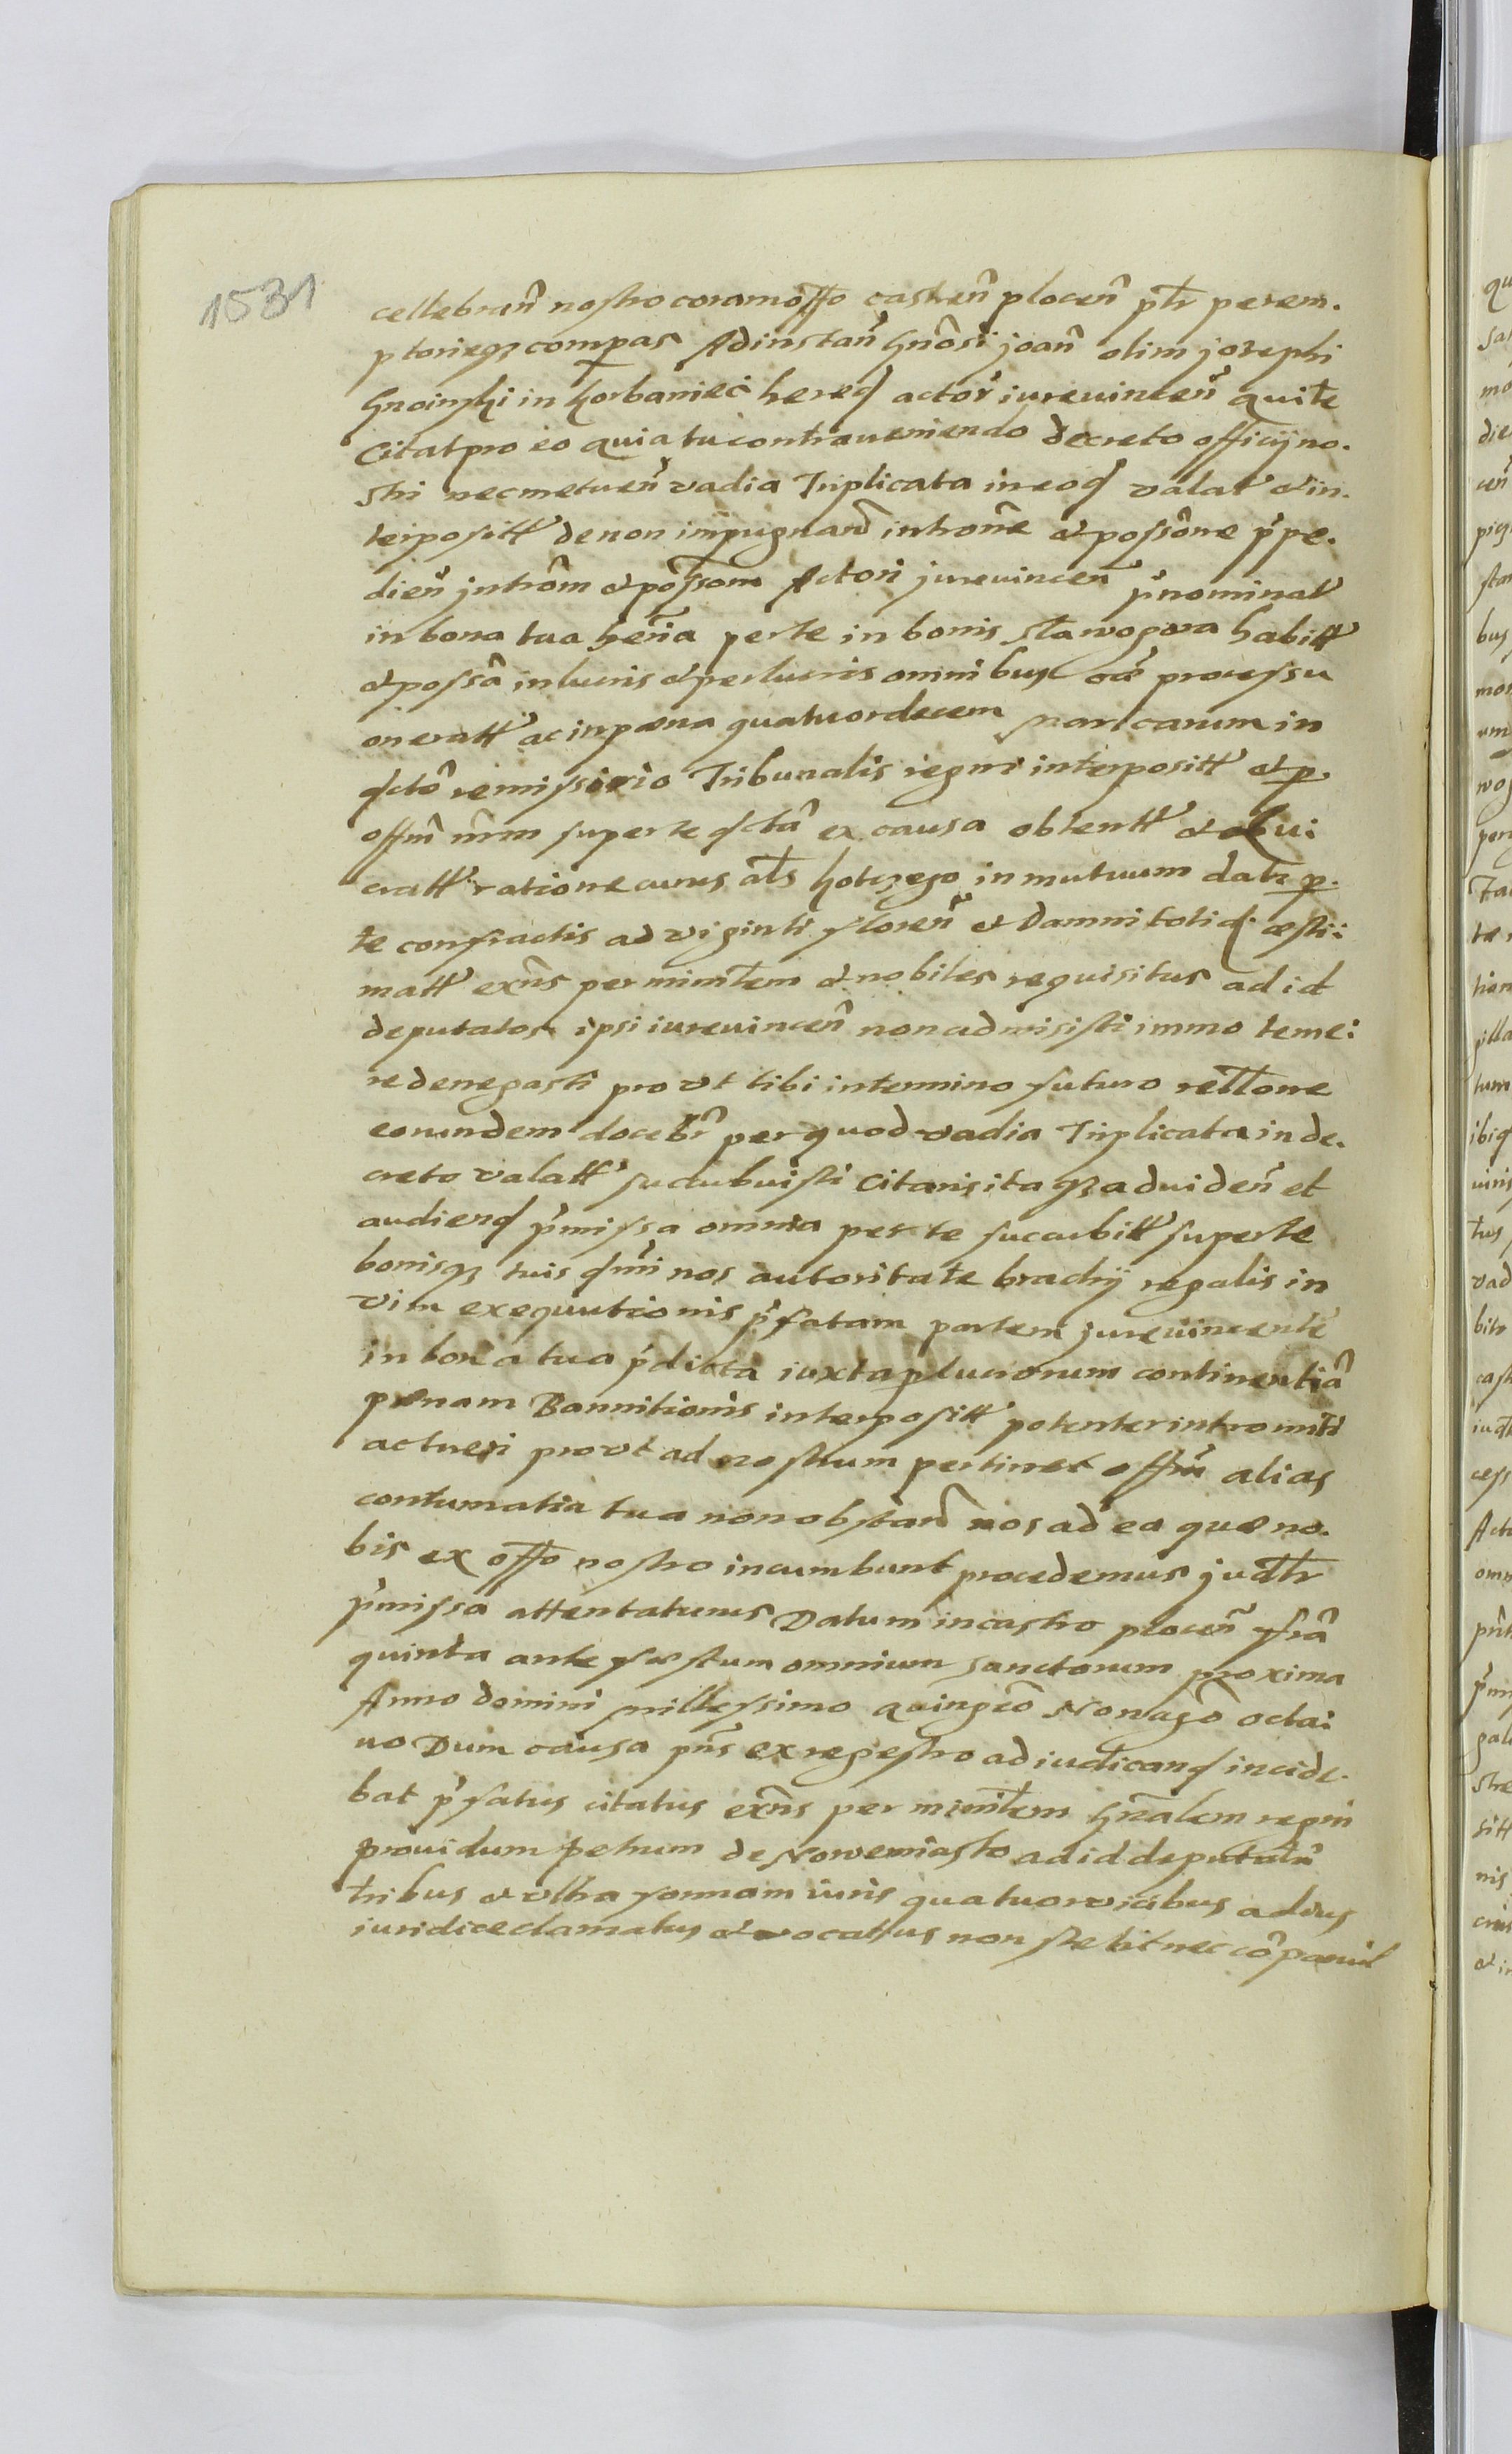 1531
cellebrañ nostro coram offo castreñ ploceñ ptr perem.
ptorieqz compas Ad instañ Gnôsi joañ olim josephi
Gnoinski in horbaniec hered actor iurevinceñ qui te
Citat pro eo quia tu contraveniendo decreto officij no.
stri nec metueñ vadia Triplicata in eod valat et in.
terpositt de non impugnand introne et possône p̃pe.
dieñ jntrôm et possom Actori jurevinceñ p̃nominat
in bona tua heria per te in bonis slawogora habitt
et possâ in lucris et perlucris omnibus processu
oneratt ac in pæna quatuordecem marcarum in
dcto remissorio Tribunalis regni interpositt et p.
offm nrm super te dctâ ex causa obtentt et adiui:
catt ratione curus als kotczego in mutuum datr p.
te confractis ad viginti floreñ et Damni totid æsti:
matt exns per mimlem et nobiles requisitus ad id
deputatos ipsi iurevinceñ non admisisti immo teme:
re denegasti pro vt tibi in termino futuro reltone
eorundem docebr per quod vadia Triplicata in de.
creto valatt succubuisti Citaris itaqz ad videñ et
audiend p̃missa omnia per te succubitt super te
bonisqz tuis nos autoritate brachij regalis in
vim exequutionis p̃fatam partem jurevincente
in bona tua p̃dicta iuxta plucrorum continentiâ
pænam Bannitionis interpositt potenter intromitti
ac tueri pro vt ad nostrum pertinet offm alias
contumatia tua non obstañ nos ad ea quæ no.
bis ex offo nostro incumbunt procedemus judtr
p̃missa attentaturus Datum in castro ploceñ frâ
quinta ante festum omnium sanctorum proxima
Anno domini millessimo quingeo Nonagô octa:
uo Dum causa pns ex regestro ad iudicand incide.
bat p̃fatus citatus exns per mimlem Gnalem regni
prouidum petrum de Nowemiasto ad id deputatũ
tribus et vltra formam iuris quatuor vicibus ad ius
iuridice clamatus et vocatus non stetit nec côparuit